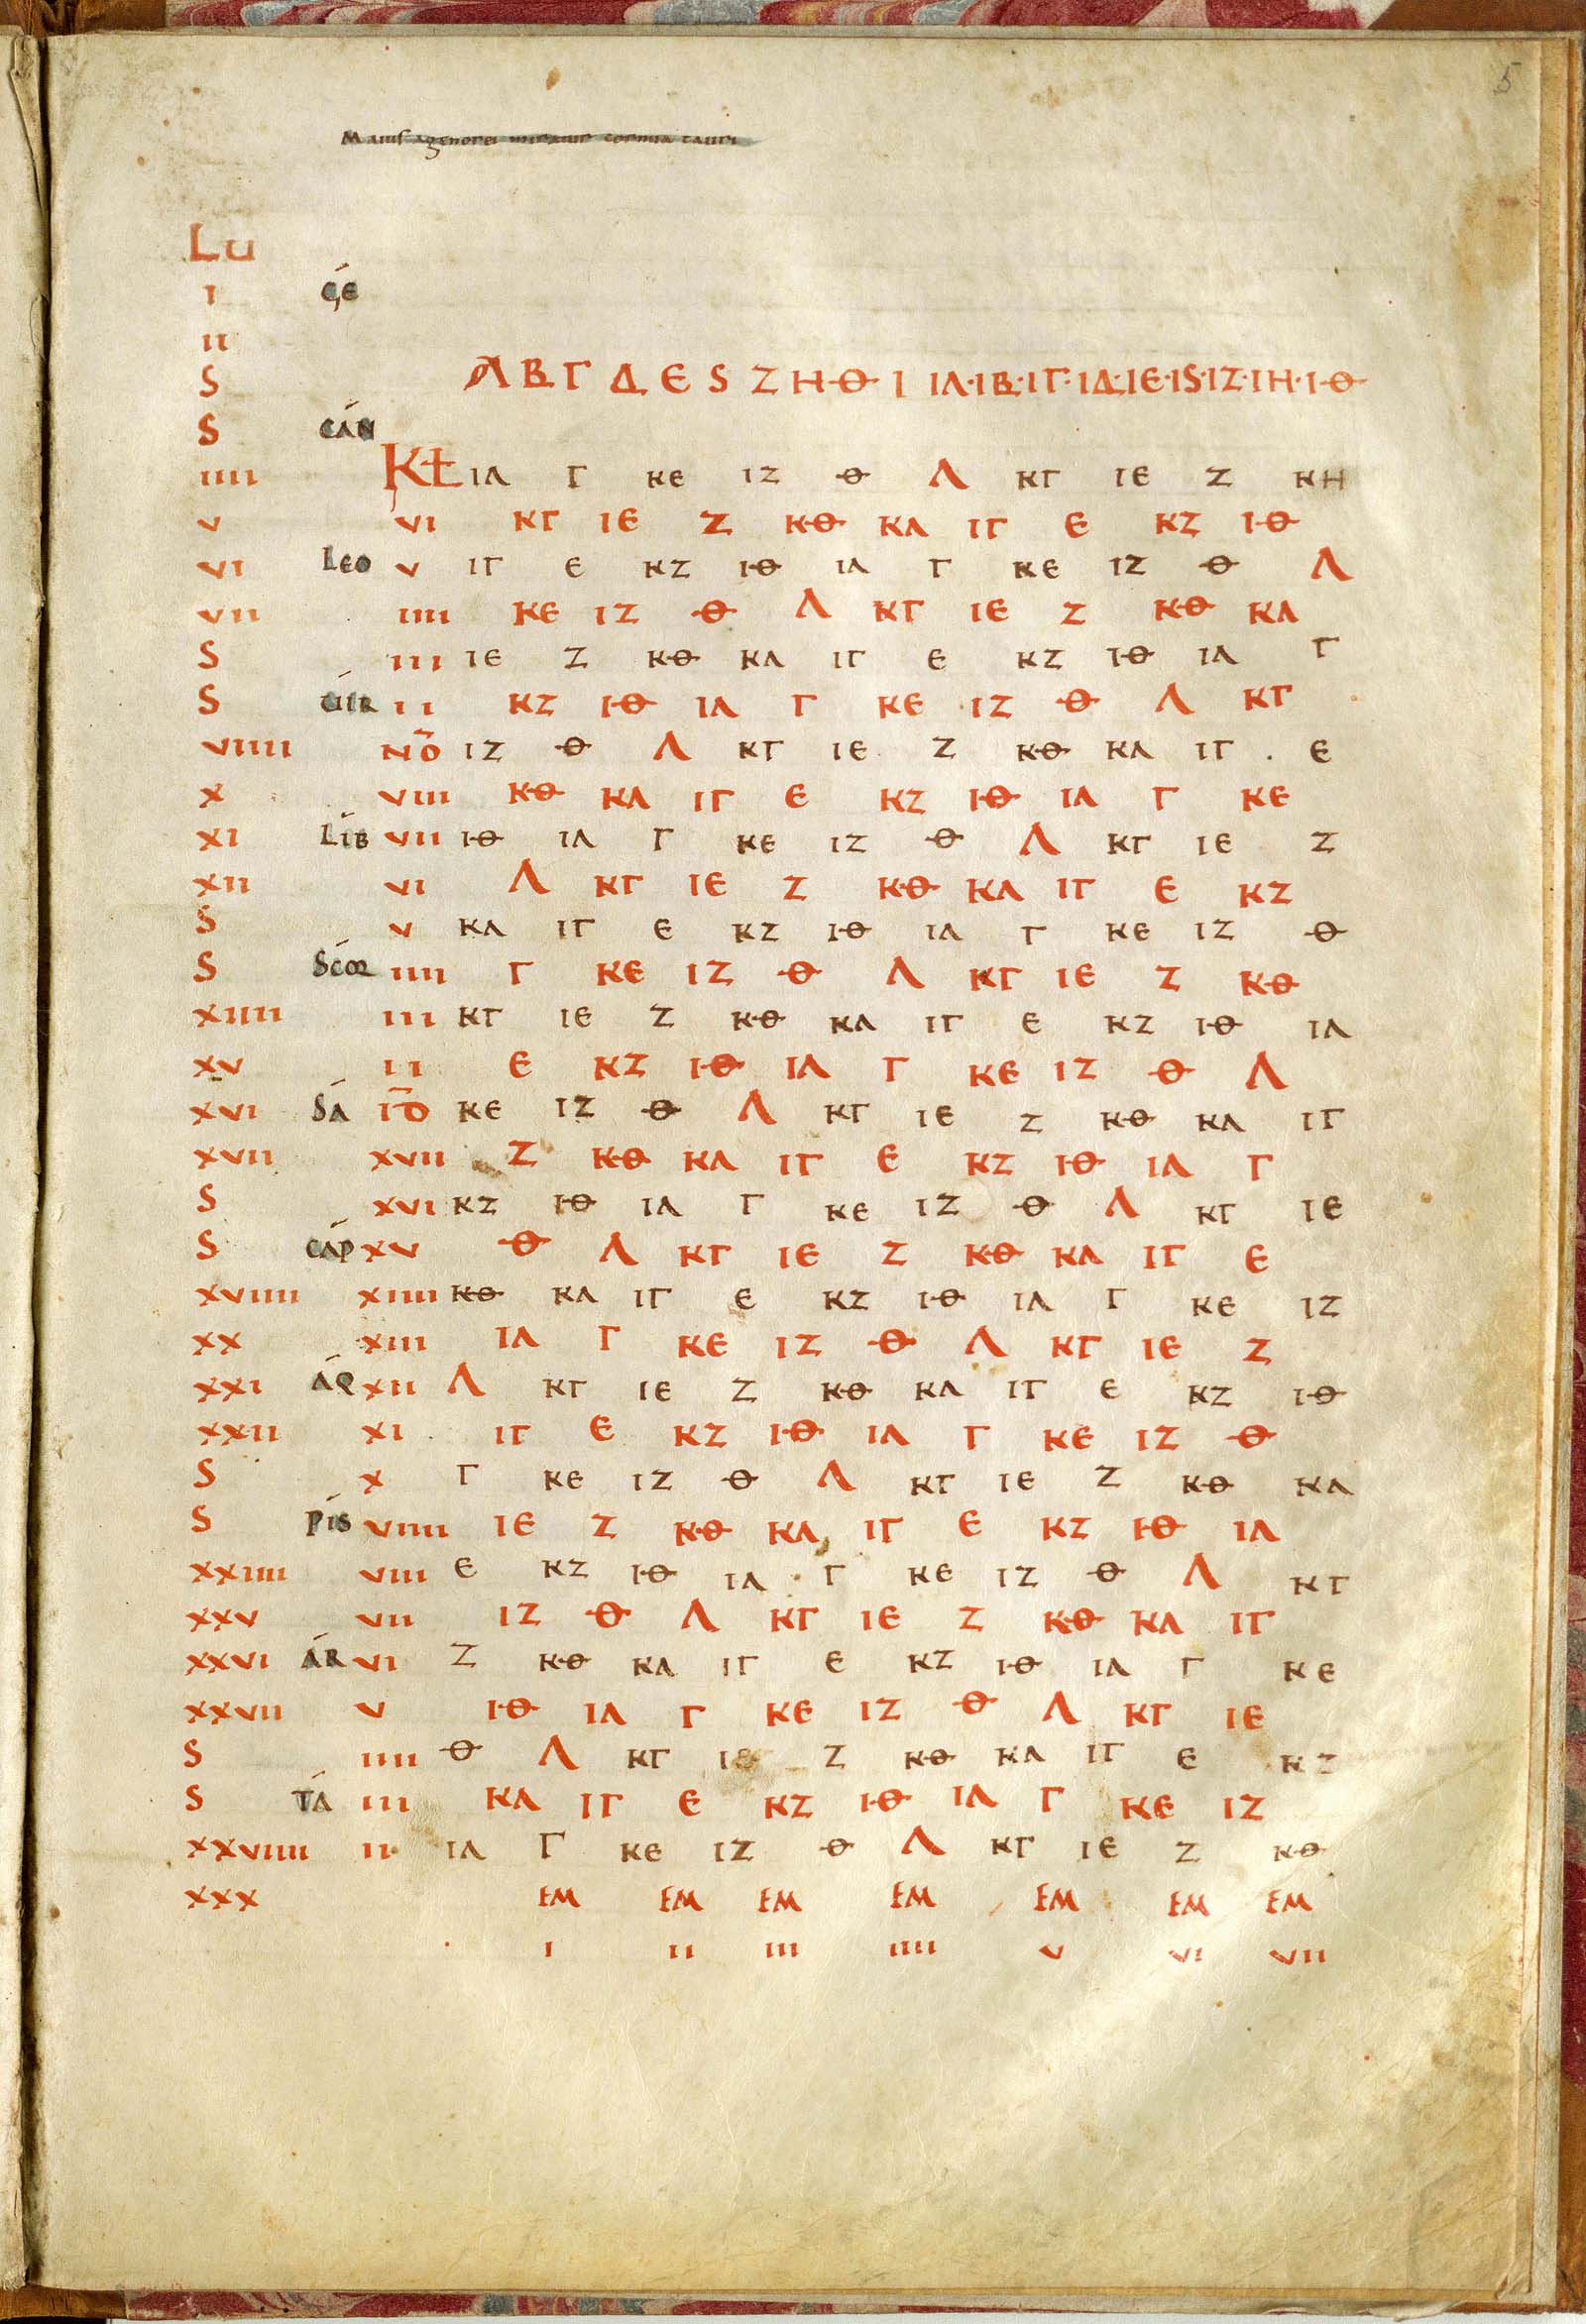 5
Maius agenorei miratur cornua tauri
Lu
I ςé
II
S Α Β Γ Δ Ε S Ζ Η Θ Ι ΙΑ·ΙΒ·ΙΓ·ΙΔ·ΙΕ·ΙS·ΙΖ·ΙΗ·ΙΘ
S cáN
IIII KŁ ΙΑ Γ ΚΕ ΙΖ Θ Λ ΚΓ ΙΕ Ζ ΚΗ
V VI ΚΓ ΙΕ Ζ ΚΘ ΚΑ ΙΓ Ε ΚΖ ΙΘ
VI Leo V ΙΓ Ε ΚΖ ΙΘ ΙΑ Γ ΚΕ ΙΖ Θ Λ
VII IIII ΚΕ ΙΖ Θ Λ ΚΓ ΙΕ Ζ ΚΘ ΚΑ
S III ΙΕ Ζ ΚΘ ΚΑ ΙΓ Ε ΚΖ ΙΘ ΙΑ Γ
S UIR II ΚΖ ΙΘ ΙΑ Γ ΚΕ ΙΖ Θ Λ ΚΓ
VIIII NŌ ΙΖ Θ Λ ΚΓ ΙΕ Ζ ΚΘ ΚΑ ΙΓ . Ε
X VIII ΚΘ ΚΑ ΙΓ Ε ΚΖ ΙΘ ΙΑ Γ ΚΕ
XI LíB VII ΙΘ ΙΑ Γ ΚΕ ΙΖ Θ Λ ΚΓ ΙΕ Ζ
XII VI Λ ΚΓ ΙΕ Ζ ΚΘ ΚΑ ΙΓ Ε ΚΖ
S V ΚΑ ΙΓ Ε ΚΖ ΙΘ ΙΑ Γ ΚΕ ΙΖ Θ
S Scór IIII Γ ΚΕ ΙΖ Θ Λ ΚΓ ΙΕ Ζ ΚΘ
XIIII III ΚΓ ΙΕ Ζ ΚΘ ΚΑ ΙΓ Ε ΚΖ ΙΘ ΙΑ
XV II Ε ΚΖ ΙΘ ΙΑ Γ ΚΕ ΙΖ Θ Λ
XVI Sá ĪD ΚΕ ΙΖ Θ Λ ΚΓ ΙΕ Ζ ΚΘ ΚΑ ΙΓ
XVII XVII Ζ ΚΘ ΚΑ ΙΓ Ε ΚΖ ΙΘ ΙΑ Γ
S XVI ΚΖ ΙΘ ΙΑ Γ ΚΕ ΙΖ Θ Λ ΚΓ ΙΕ
S CáP XV Θ Λ ΚΓ ΙΕ Ζ ΚΘ ΚΑ ΙΓ Ε
XVIIII XIIII ΚΘ ΚΑ ΙΓ Ε ΚΖ ΙΘ ΙΑ Γ ΚΕ ΙΖ
XX XIII ΙΑ Γ ΚΕ ΙΖ Θ Λ ΚΓ ΙΕ Ζ
XXI áQ XII Λ ΚΓ ΙΕ Ζ ΚΘ ΚΑ ΙΓ Ε ΚΖ ΙΘ
XXII XI ΙΓ Ε ΚΖ ΙΘ ΙΑ Γ ΚΕ ΙΖ Θ
S X Γ ΚΕ ΙΖ Θ Λ ΚΓ ΙΕ Ζ ΚΘ ΚΑ
S PíS VIIII ΙΕ Ζ ΚΘ ΚΑ ΙΓ Ε ΚΖ ΙΘ ΙΑ
XXIIII VIII Ε ΚΖ ΙΘ ΙΑ Γ ΚΕ ΙΖ Θ Λ ΚΓ
XXV VII ΙΖ Θ Λ ΚΓ ΙΕ Ζ ΚΘ ΚΑ ΙΓ
XXVI áR VI Ζ ΚΘ ΚΑ ΙΓ Ε ΚΖ ΙΘ ΙΑ Γ ΚΕ
XXVII V ΙΘ ΙΑ Γ ΚΕ ΙΖ Θ Λ ΚΓ ΙΕ
S IIII Θ Λ ΚΓ ΙΕ Ζ ΚΘ ΚΑ ΙΓ Ε ΚΖ
S Tá III ΚΑ ΙΓ Ε ΚΖ ΙΘ ΙΑ Γ ΚΕ ΙΖ
XXVIIII II ΙΑ Γ ΚΕ ΙΖ Θ Λ ΚΓ ΙΕ Ζ ΚΘ
XXX EM EM EM EM EM EM EM
I II III IIII V VI VII